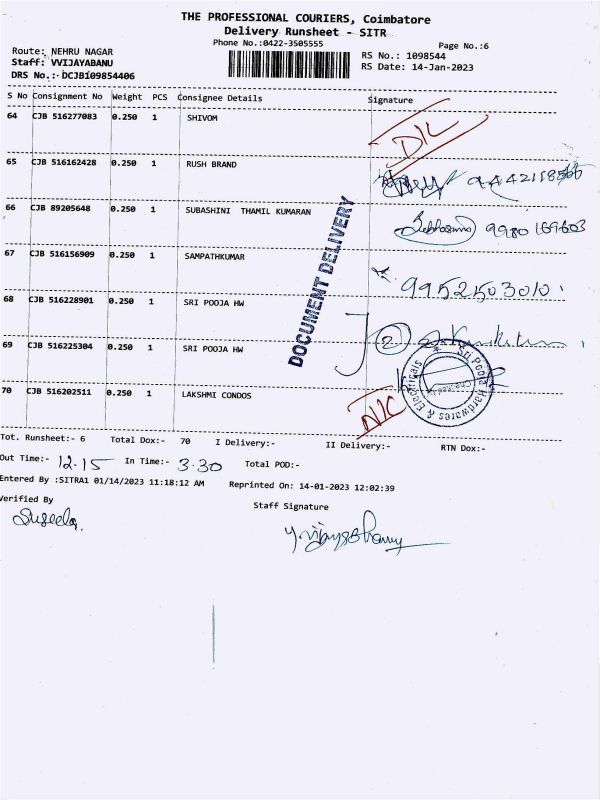 THE PROFESSIONAL COURIERS, Coimbatore
Delivery Runsheet - SITR
Phone No.:0422-3505555
Page No.:6
Route: NEHRU NAGAR
RS No.: 1098544
Staff: VVIJAYABANU
RS Date: 14-Jan-2023
DRS No.: DCJB109854406
S No Consignment No Weight PCS Consignee Details Signature
64 CJB 516277083 0.250 1 SHIVOM D/L
65 CJB 516162428 0.250 1 RUSH BRAND
66 CJB 89205648 0.250 1 SUBASHINI THAMIL KUMARAN 9980169603
67 CJB 516156909 0.250 1 SAMPATHKUMAR 9952503010
DOCUMENT DELIVERY
68 CJB 516228901 0.250 1 SRI POOJA HW
2
69 CJB 516225304 0.250 1 SRI POOJA HW
Sri Pooja Hardwares & Electricals
70 CJB 516202511 0.250 1 LAKSHMI CONDOS N/C
Tot. Runsheet:- 6 Total Dox:- 70 I Delivery:- II Delivery:- RTN Dox:-
Out Time:- 12.15 In Time:- 3.30 Total POD:-
Entered By :SITRA1 01/14/2023 11:18:12 AM Reprinted On: 14-01-2023 12:02:39
Verified By Staff Signature
Suseela